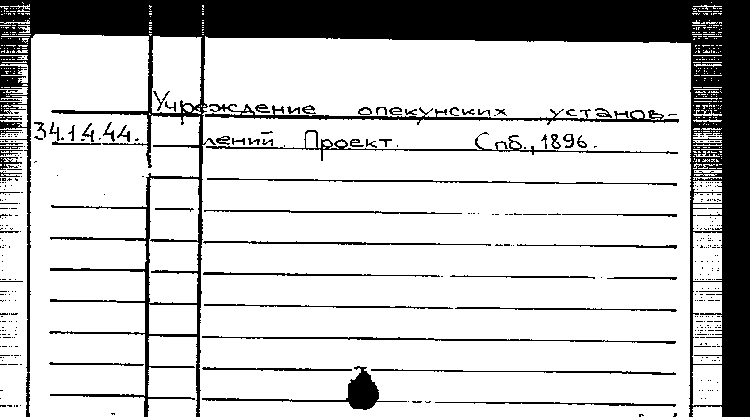 Учреждение опекунских установ-
34.14.44. лений. Проект. Спб., 1896.